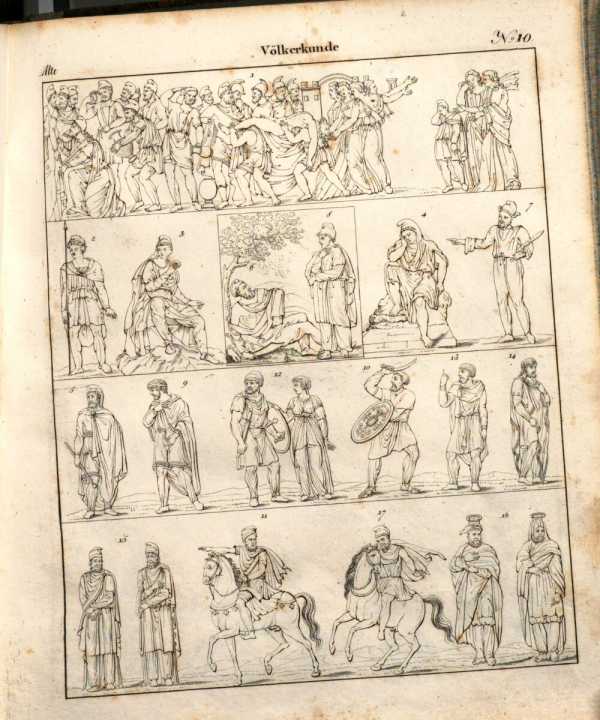 Völkerkunde
No. 10.
Alte
1
2
3
5
6
4
7
9
12
10
13
14
15
11
17
16